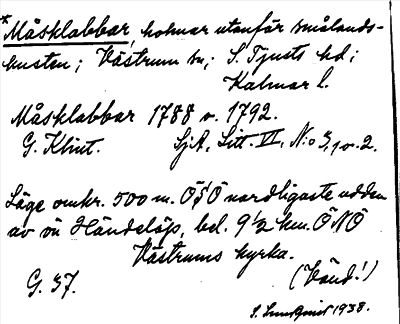 *Måsklabbar, holmar utanför smålands-
kusten; Västrum sn; S. Tjusts hd;
Kalmar l.
Måsklabbar 1788 o. 1792.
G. Klint. SjA, Litt. VI, N:o 3, 1 o. 2.
Läge omkr. 500 m. ÖSÖ nordligaste udden
av ön Händelöp, bel. 9½ km. ÖNÖ
Västrums kyrka.
G. 37. (Vänd!)
S. Lundquist 1938.